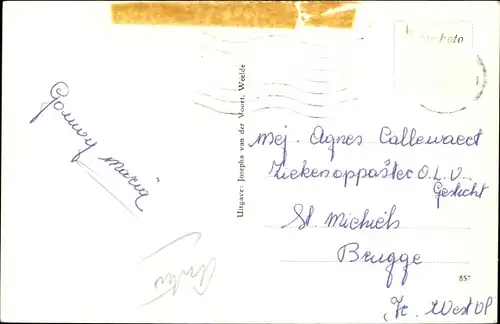 Gonnoy Maria
Uitgave: Josepha van der Voort, Weelde
Mej. Agnes Callewaert
Ziekenoppaster O.L.V.
Gesticht
St Michiels
Brugge
857
West Vl